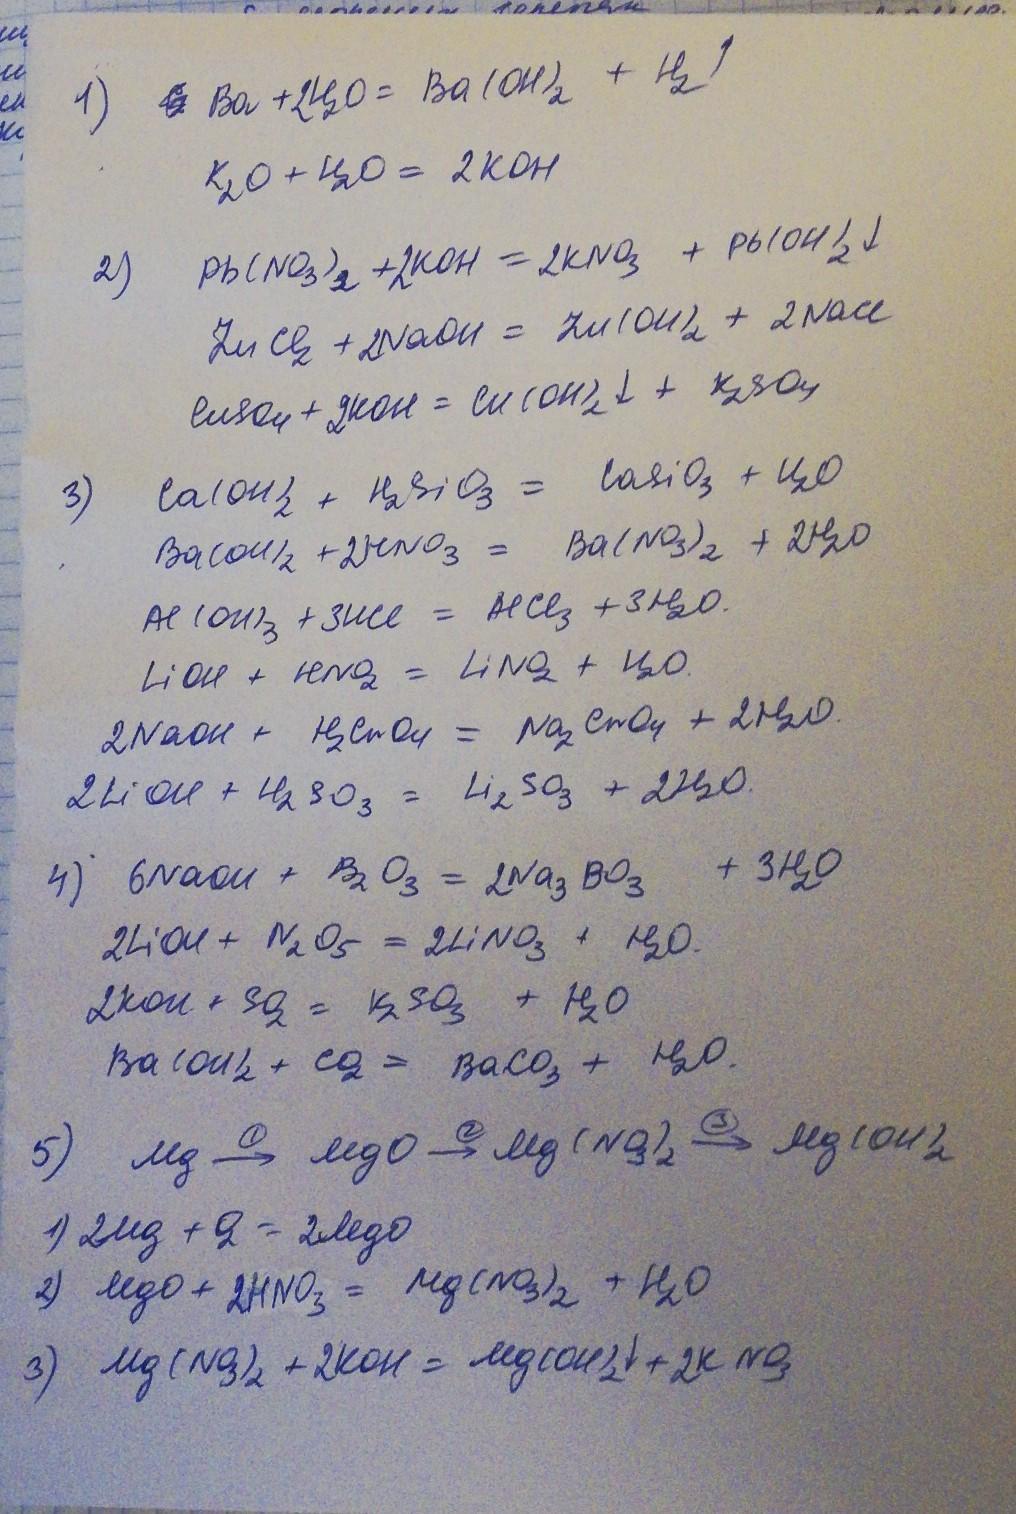 1) Ba + 2H₂O = Ba(OH)₂ + H₂↑
K₂O + H₂O = 2KOH
2) Pb(NO₃)₂ + 2KOH = 2KNO₃ + Pb(OH)₂↓
ZnCl₂ + 2NaOH = Zn(OH)₂ + 2NaCl
CuSO₄ + 2KOH = Cu(OH)₂↓ + K₂SO₄
3) Ca(OH)₂ + H₂SiO₃ = CaSiO₃ + H₂O
Ba(OH)₂ + 2HNO₃ = Ba(NO₃)₂ + 2H₂O
Al(OH)₃ + 3HCl = AlCl₃ + 3H₂O.
LiOH + HNO₂ = LiNO₂ + H₂O.
2NaOH + H₂CrO₄ = Na₂CrO₄ + 2H₂O.
2LiOH + H₂SO₃ = Li₂SO₃ + 2H₂O.
4) 6NaOH + B₂O₃ = 2Na₃BO₃ + 3H₂O
2LiOH + N₂O₅ = 2LiNO₃ + H₂O.
2KOH + SO₂ = K₂SO₃ + H₂O
Ba(OH)₂ + CO₂ = BaCO₃ + H₂O.
5) Mg →① MgO →② Mg(NO₃)₂ →③ Mg(OH)₂
1) 2Mg + O₂ = 2MgO
2) MgO + 2HNO₃ = Mg(NO₃)₂ + H₂O
3) Mg(NO₃)₂ + 2KOH = Mg(OH)₂↓ + 2KNO₃